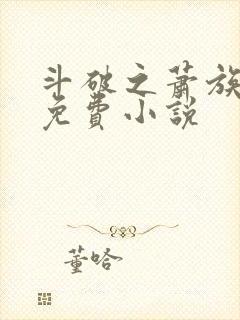 斗破之蕭族
免費小說
董哈